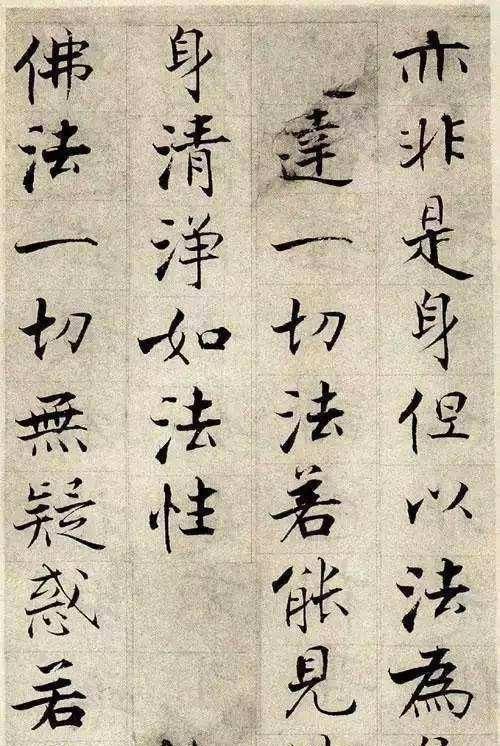 亦非是身但以法為
達一切法若能見
身清淨如法性
佛法一切無疑惑若